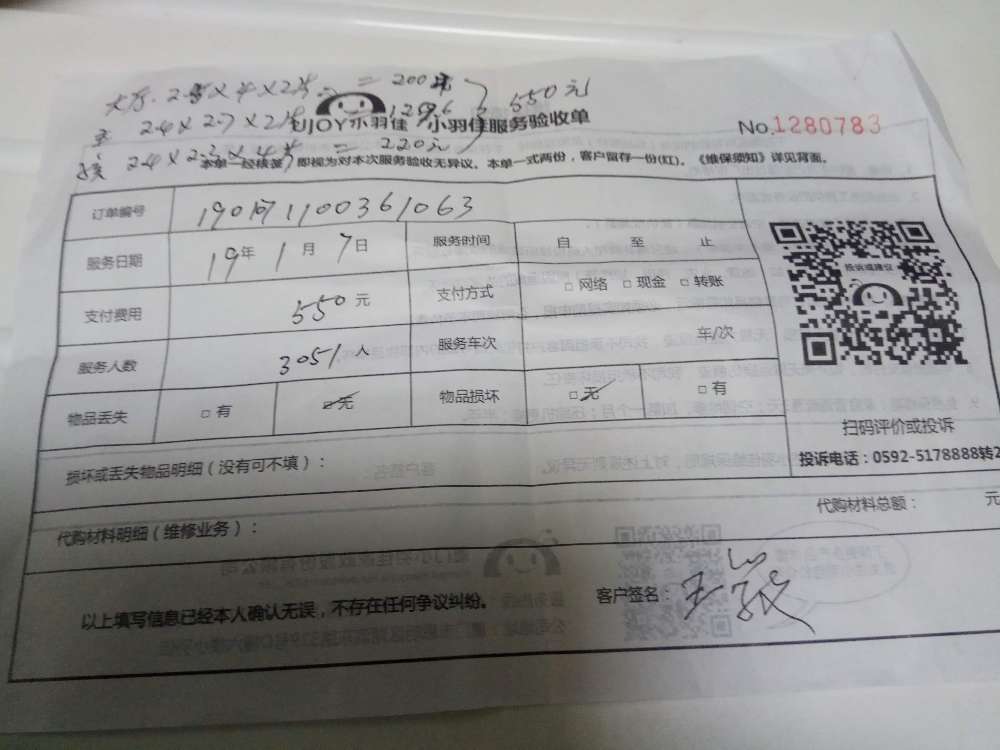 = 200
550元
UJOY小羽佳 小羽佳服务验收单
No.1280783
2.4×2.7×
= 220元
本单一经核签，即视为对本次服务验收无异议。本单一式两份，客户留存一份(红)。《维保须知》详见背面。
订单编号
服务日期 19年 1月 7日 服务时间 自 至 止
支付费用 550元 支付方式 □ 网络 □ 现金 □ 转账
服务人数 3051人 服务车次 车/次
物品丢失 □ 有 □ 无 物品损坏 □ 无 □ 有
投诉或建议
扫码评价或投诉
投诉电话：0592-5178888转2
损坏或丢失物品明细（没有可不填）：
代购材料明细（维修业务）： 代购材料总额： 元
以上填写信息已经本人确认无误，不存在任何争议纠纷。 客户签名：